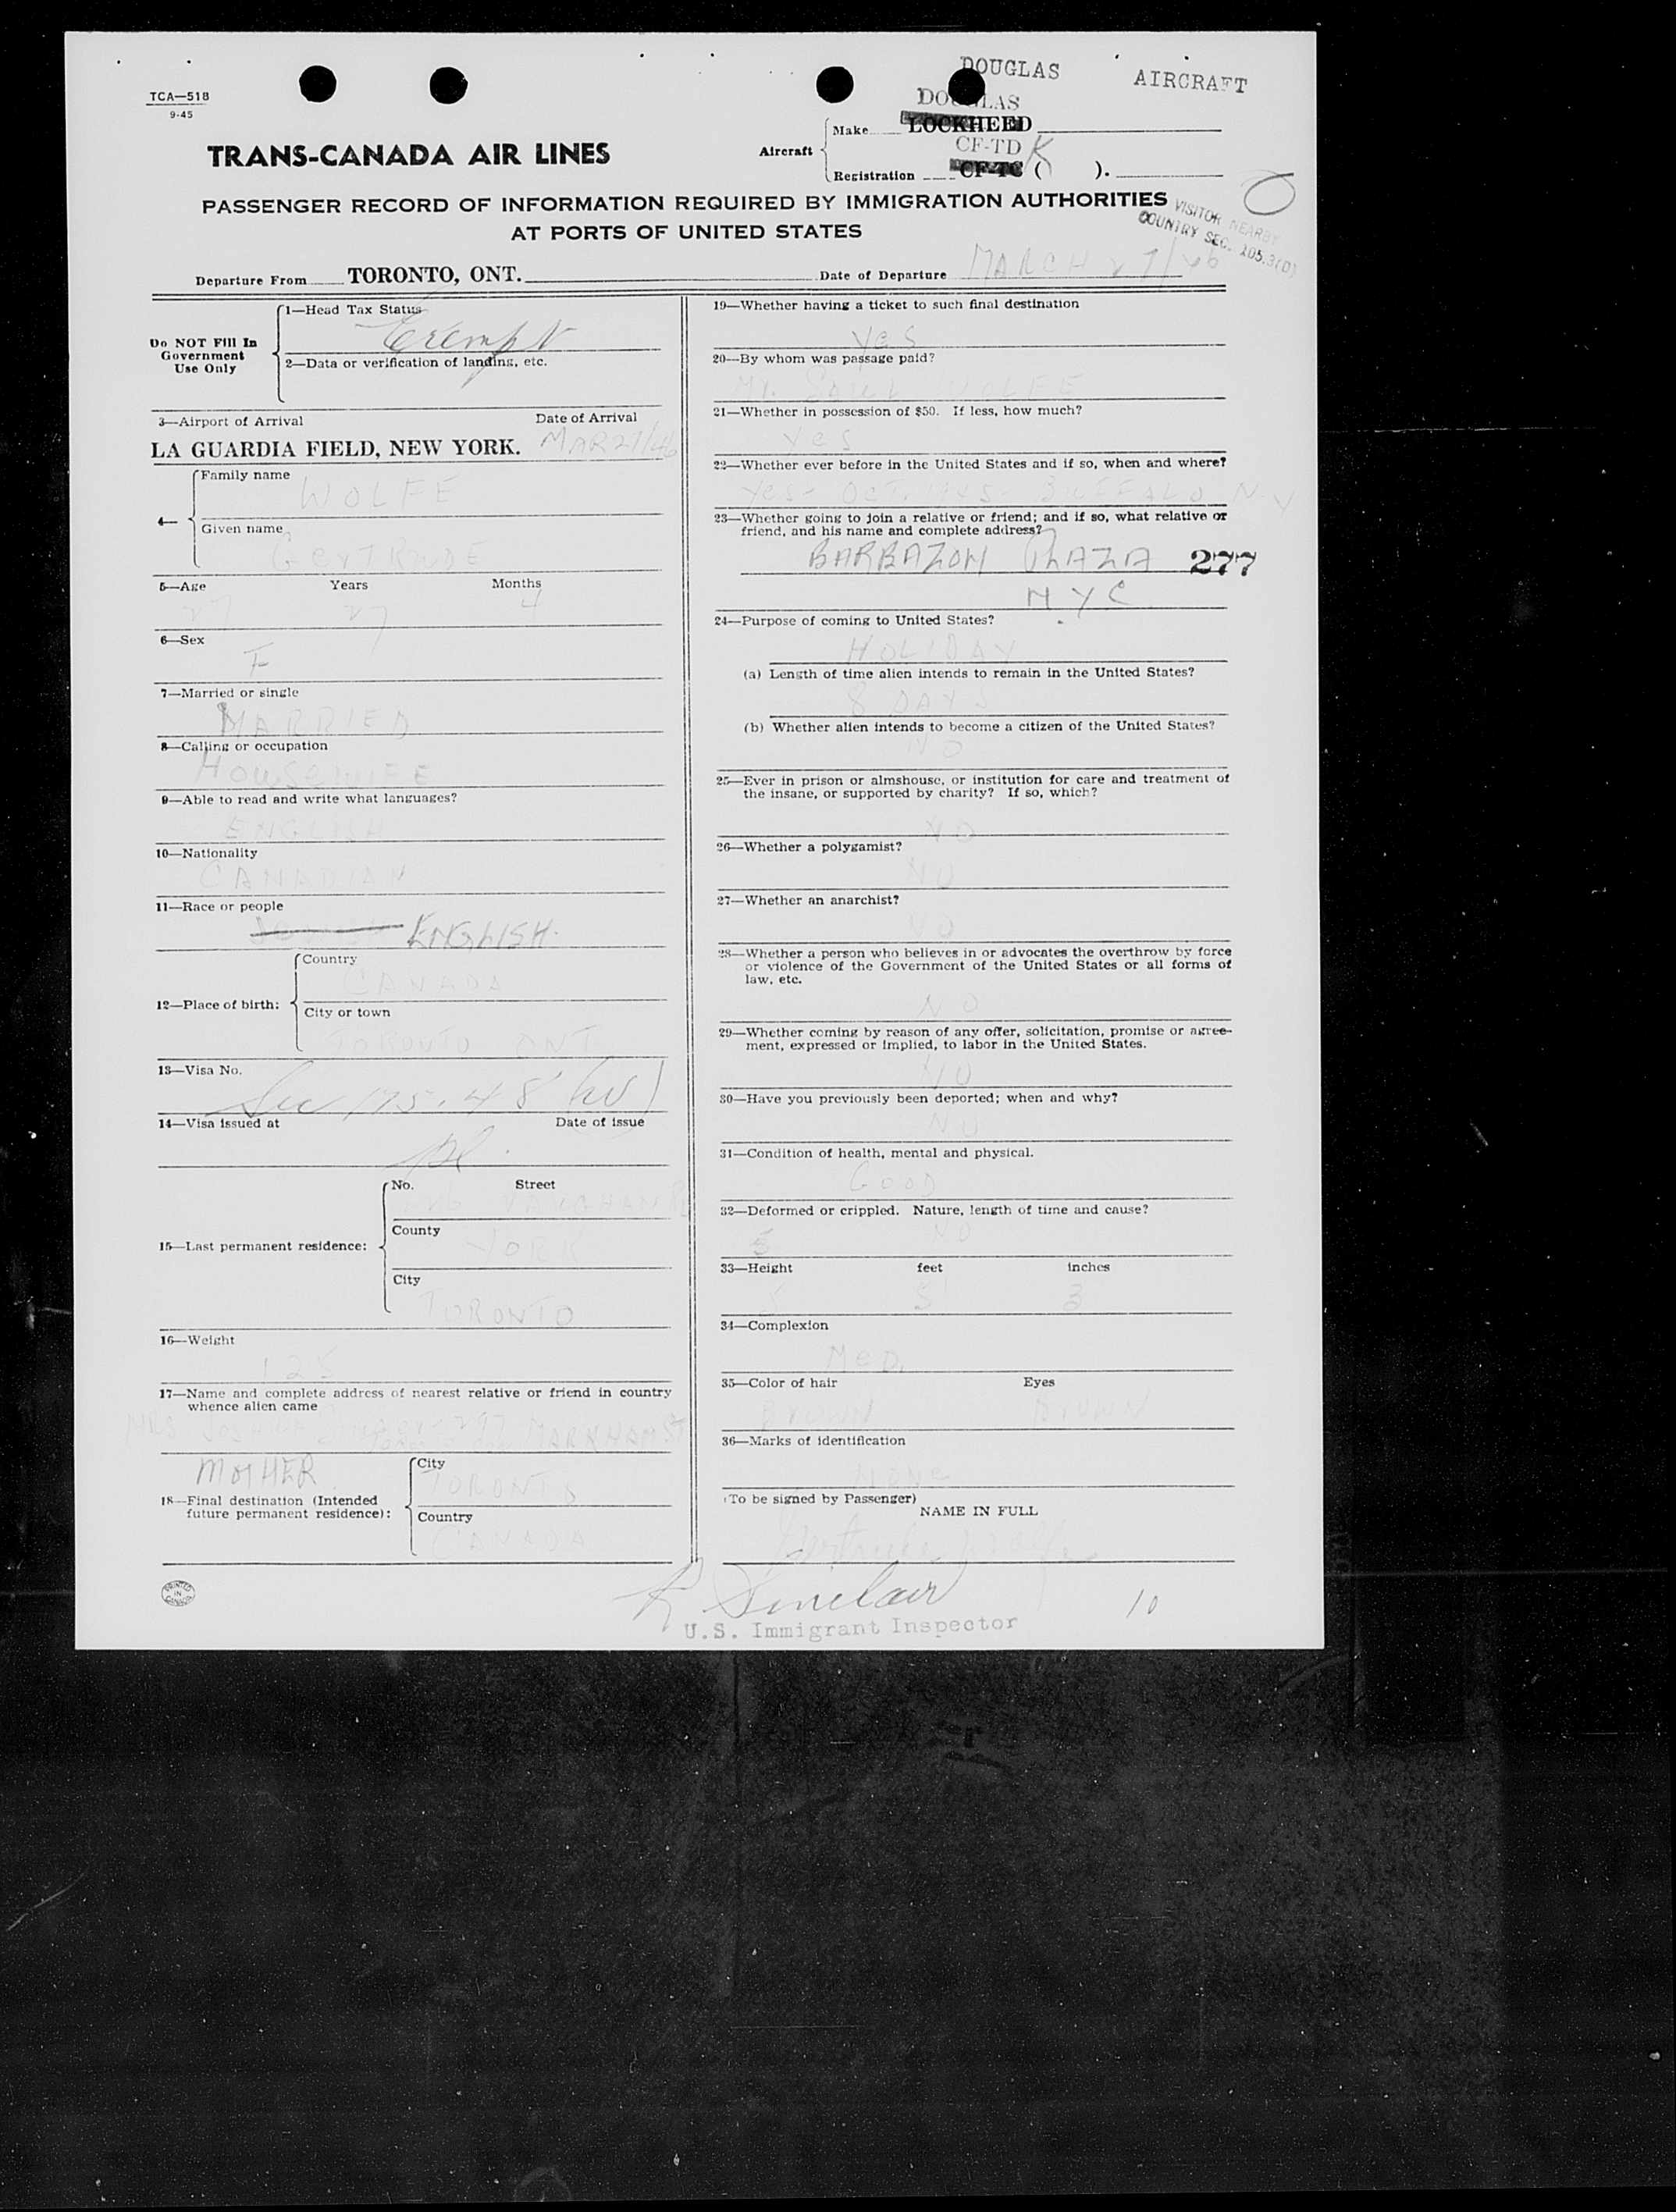 TCA—518
9-45
DOUGLAS AIRCRAFT
DOUGLAS
Aircraft
Make LOCKHEED
CF-TD K
Registration CF-TC ( ).
TRANS-CANADA AIR LINES
PASSENGER RECORD OF INFORMATION REQUIRED BY IMMIGRATION AUTHORITIES
AT PORTS OF UNITED STATES
VISITOR NEARBY
COUNTRY SEC. 105.3(D)
Departure From TORONTO, ONT. Date of Departure MARCH 27/46
Do NOT Fill In
Government
Use Only
1—Head Tax Status
Exempt
2—Data or verification of landing, etc.
3—Airport of Arrival Date of Arrival
LA GUARDIA FIELD, NEW YORK. MAR 27/46
4—
Family name
WOLFE
Given name
GERTRUDE
5—Age Years Months
27 27 4
6—Sex
F
7—Married or single
MARRIED
8—Calling or occupation
HOUSEWIFE
9—Able to read and write what languages?
ENGLISH
10—Nationality
CANADIAN
11—Race or people
ENGLISH.
12—Place of birth:
Country
CANADA
City or town
TORONTO ONT
13—Visa No.
Sec 175.48
14—Visa issued at Date of issue
15—Last permanent residence:
No. Street
VAUGHAN RD
County
YORK
City
TORONTO
16—Weight
125
17—Name and complete address of nearest relative or friend in country
whence alien came
MRS 297 MARKHAM ST
MOTHER
18—Final destination (Intended
future permanent residence):
City
TORONTO
Country
CANADA
PRINTED
IN
CANADA
19—Whether having a ticket to such final destination
Yes
20—By whom was passage paid?
Mr. SAUL WOLFE
21—Whether in possession of $50. If less, how much?
Yes
22—Whether ever before in the United States and if so, when and where?
Yes - OCT. 1945 - BUFFALO N-Y
23—Whether going to join a relative or friend; and if so, what relative or
friend, and his name and complete address?
BARBAZON PLAZA 277
NYC
24—Purpose of coming to United States?
HOLIDAY
(a) Length of time alien intends to remain in the United States?
8 DAYS
(b) Whether alien intends to become a citizen of the United States?
NO
25—Ever in prison or almshouse, or institution for care and treatment of
the insane, or supported by charity? If so, which?
NO
26—Whether a polygamist?
NO
27—Whether an anarchist?
NO
28—Whether a person who believes in or advocates the overthrow by force
or violence of the Government of the United States or all forms of
law, etc.
NO
29—Whether coming by reason of any offer, solicitation, promise or agree-
ment, expressed or implied, to labor in the United States.
NO
30—Have you previously been deported; when and why?
NO
31—Condition of health, mental and physical.
GOOD
32—Deformed or crippled. Nature, length of time and cause?
NO
33—Height feet inches
5 5 3
34—Complexion
MeD.
35—Color of hair Eyes
BROWN BROWN
36—Marks of identification
NONe
(To be signed by Passenger)
NAME IN FULL
Gertrude Wolfe
R Sinclair
U.S. Immigrant Inspector
10